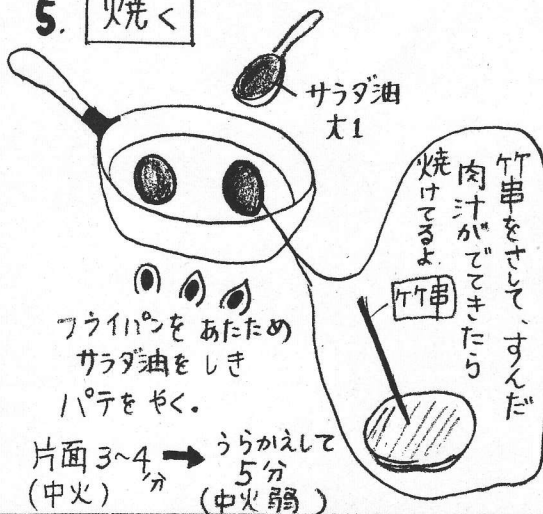 5. 焼く
サラダ油
大1
竹串をさして、すんだ
肉汁がでてきたら
焼けてるよ
竹串
フライパンを あたため
サラダ油を しき
パテを やく。
片面 3~4分 → うらがえして
5分
(中火) (中火弱)